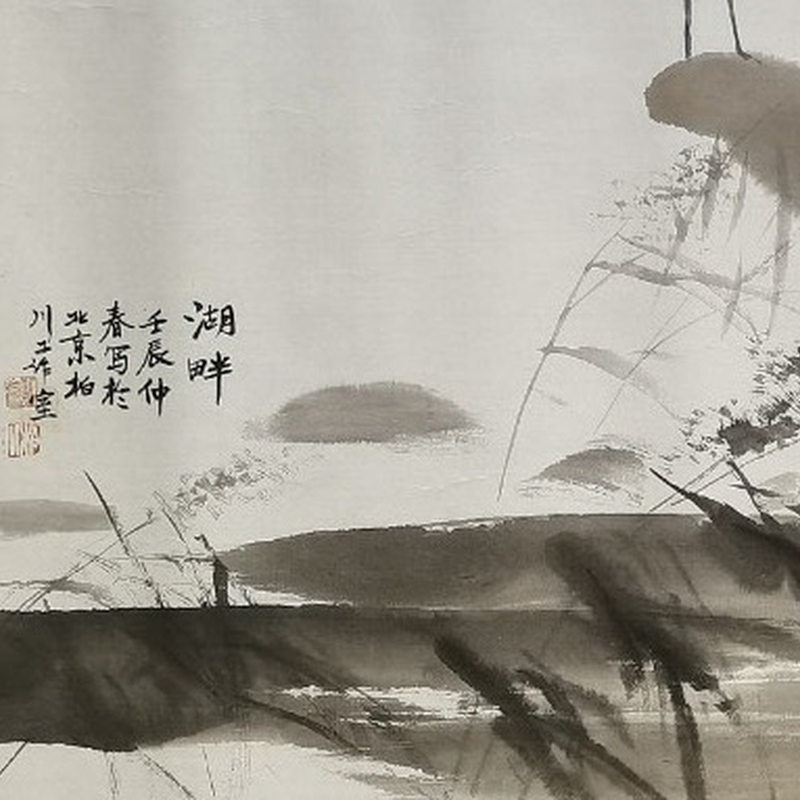 湖畔
壬辰仲
春写于
北京柏
川工作室